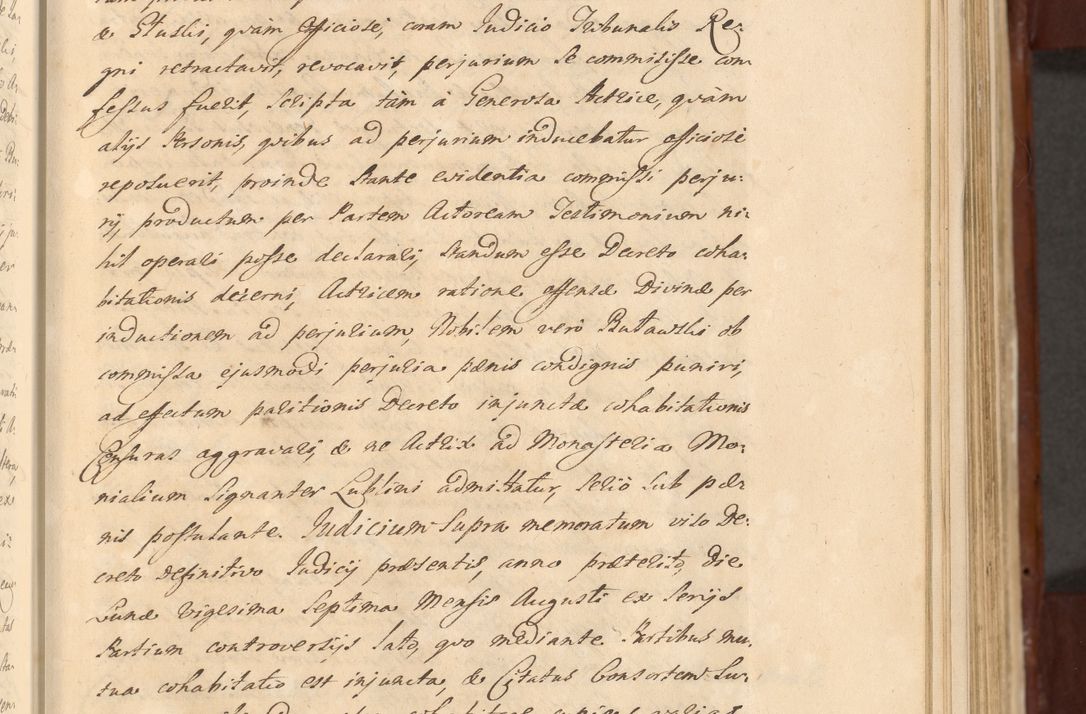 & Stuski, qvàm Officiosè, coram Judicio Tribunalis Re:
gni retractavit, revocavit, perjurium se commisisse con
fessus fuerit, scripta tàm à Generosa Actrice, qvàm
alijs Personis, qvibus ad perjurium inducebatur officiosè
reposuerit, proinde stante evidentia commissi perju:
rij productum per Partem Actoream Testimonium ni:
hil operari posse declarari, standum esse Decreto coha:
bitationis decerni, Actricem ratione offensæ Divinæ per
inductionem ad perjurium, Nobilem verò Butawski ob
commissa ejusmodi perjuria pænis condignis puniri,
ad effectum paritionis Decreto injunctæ cohabitationis
Censuras aggravari, & ne Actrix ad Monasteria Mo:
nialium signanter Lublini admittatur, seriò sub pæ:
nis postulante. Judicium supra memoratum viso De:
creto definitivo Judicij præsentis, anno præterito, die
Lunæ vigesima septima Mensis Augusti ex serijs
Partium controversijs lato, qvo mediante Partibus mu:
tua cohabitatio est injuncta, & Citatus Consortem su: